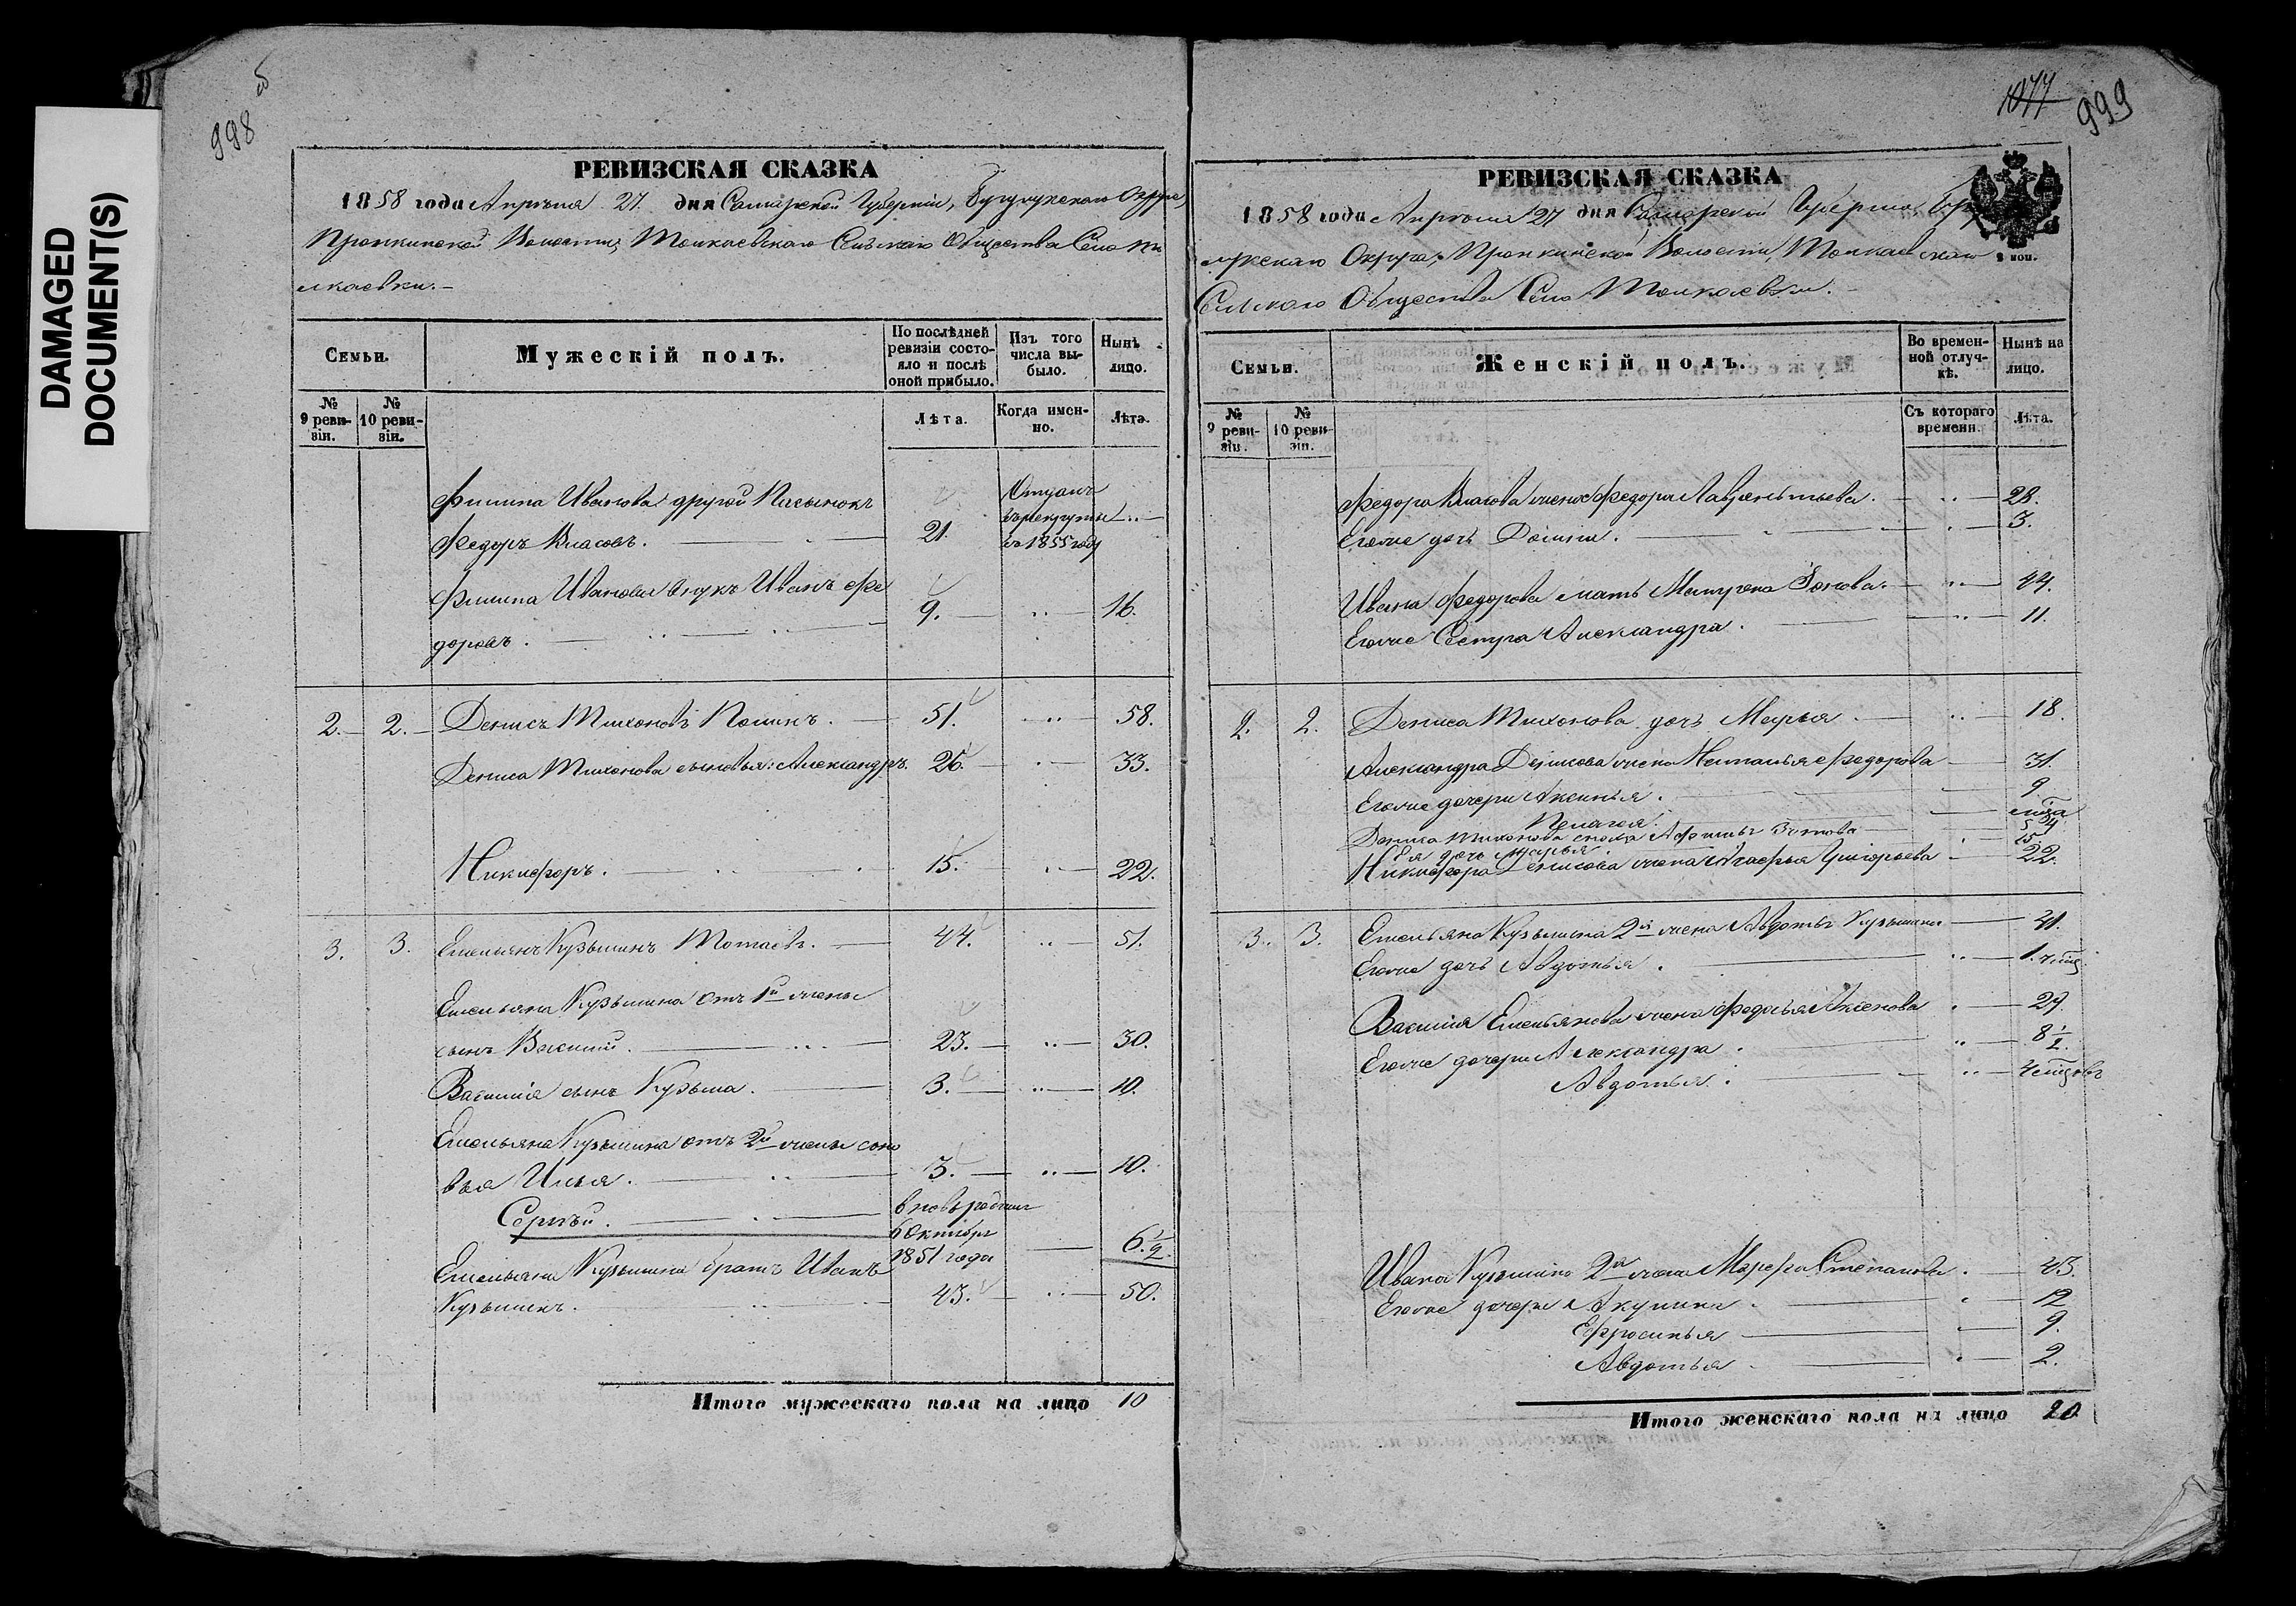 DAMAGED
DOCUMENT(S)
998 об
РЕВИЗСКАЯ СКАЗКА
1858 года Апрѣля 27 дня Самарской Губерніи, Бугурусланскаго Округа,
Пронкинской Волости, Толкаевскаго Сельскаго Общества Села То
лкаевки.
Семьи.
Мужескій полъ.
По послѣдней ревизіи состояло и послѣ оной прибыло.
Изъ того числа выбыло.
Нынѣ лицо.
№ 9 ревизіи.
№ 10 ревизіи.
Лѣта.
Когда именно.
Лѣта.
Филипа Иванова другой Пасынокъ
Федоръ Власовъ. 21. Отданъ въ рекруты въ 1855 году
Филипа Иванова внукъ Иванъ Фе
доровъ. 9. 16.
2. 2. Денисъ Тихоновъ 51. 58.
Дениса Тихонова сыновья: Александръ. 26. 33.
Никифоръ. 15. 22.
3. 3. Емельянъ Кузьминъ 44. 51.
Емельяна Кузьмина отъ 1й жены
сынъ Василий. 23. 30.
Василія сынъ Кузьма. 3. 10.
Емельяна Кузьмина отъ 2й жены сыно
вья Илья. 3. 10.
Сергѣй. вновь рожден
6 Октября
1851 года 6 1/2.
Емельяна Кузьмина братъ Иванъ
Кузьминъ. 43. 50.
Итого мужескаго пола на лицо 10
1077 999
РЕВИЗСКАЯ СКАЗКА
1858 года Апрѣля 27 дня Самарской Губерніи
Округа, Пронкинской Волости, Толкаевскаго
Сельскаго Общества Села Толкаевки.
Семьи.
Женскій полъ.
Во временной отлучкѣ.
Нынѣ на лицо.
№ 9 ревизіи.
№ 10 ревизіи.
Съ котораго времени.
Лѣта.
Федора Власова жена Федора Лаврентьева. 28.
Егоже дочь 3.
Ивана Федорова мать Матрена 44.
Егоже Сестра Александра. 11.
2. 2. Дениса Тихонова дочь Марья. 18.
Александра Денисова жена Наталья Федорова 31.
Егоже дочери Аксинья. 9
Пелагея.
Дениса Тихонова
Ея дочь Марья.
Никифора Денисова жена Агафья Григорьева 22.
3. 3. Емельяна Кузьмина 2я жена Авдотья Кузьмина 41.
Егоже дочь Авдотья. 1.
Василія Емельянова жена Федосья Аксенова 29.
Егоже дочери Александра. 8 1/2.
Авдотья.
Ивана Кузьмина 2я жена Марфа Степанова. 43.
Егоже дочери Акулина. 12
Ефросинья 9.
Авдотья 2.
Итого женскаго пола на лицо 20